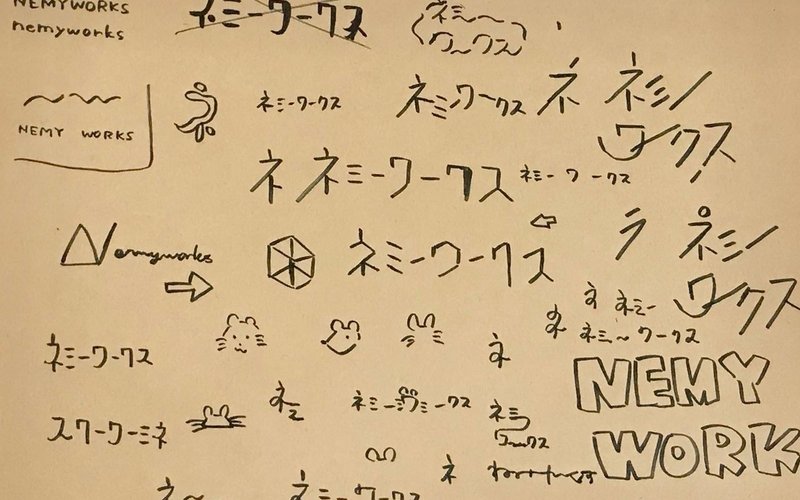 NEMYWORKS
nemyworks
ネミーワークス
ネミ〜
ワ〜クス
NEMY WORKS
ネミーワークス
ネミーワークス
ネ
ネミー
ワークス
ネ
ネミーワークス
ネミーワークス
Nemyworks
ネミーワークス
ラ
ネミー
ワークス
ネ
ネミー
ネ
ネミ〜ワークス
ネミーワークス
ネ
NEMY
WORK
スクーワーミネ
ネミ
ネミーワークス
ネミ
ワークス
ネ
ネ〜
ネミーワークス